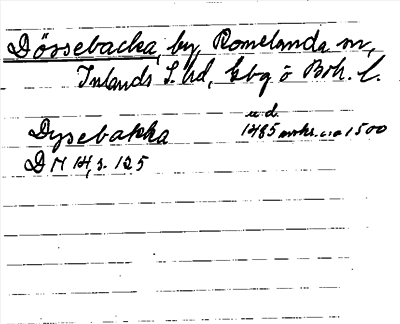 Dössebacka, by, Romelanda sn,
Inlands S. hd, Gbg o Boh. l.
u.d.
Dysebakka 1485 avskr. c:a 1500
DN 14, s. 125